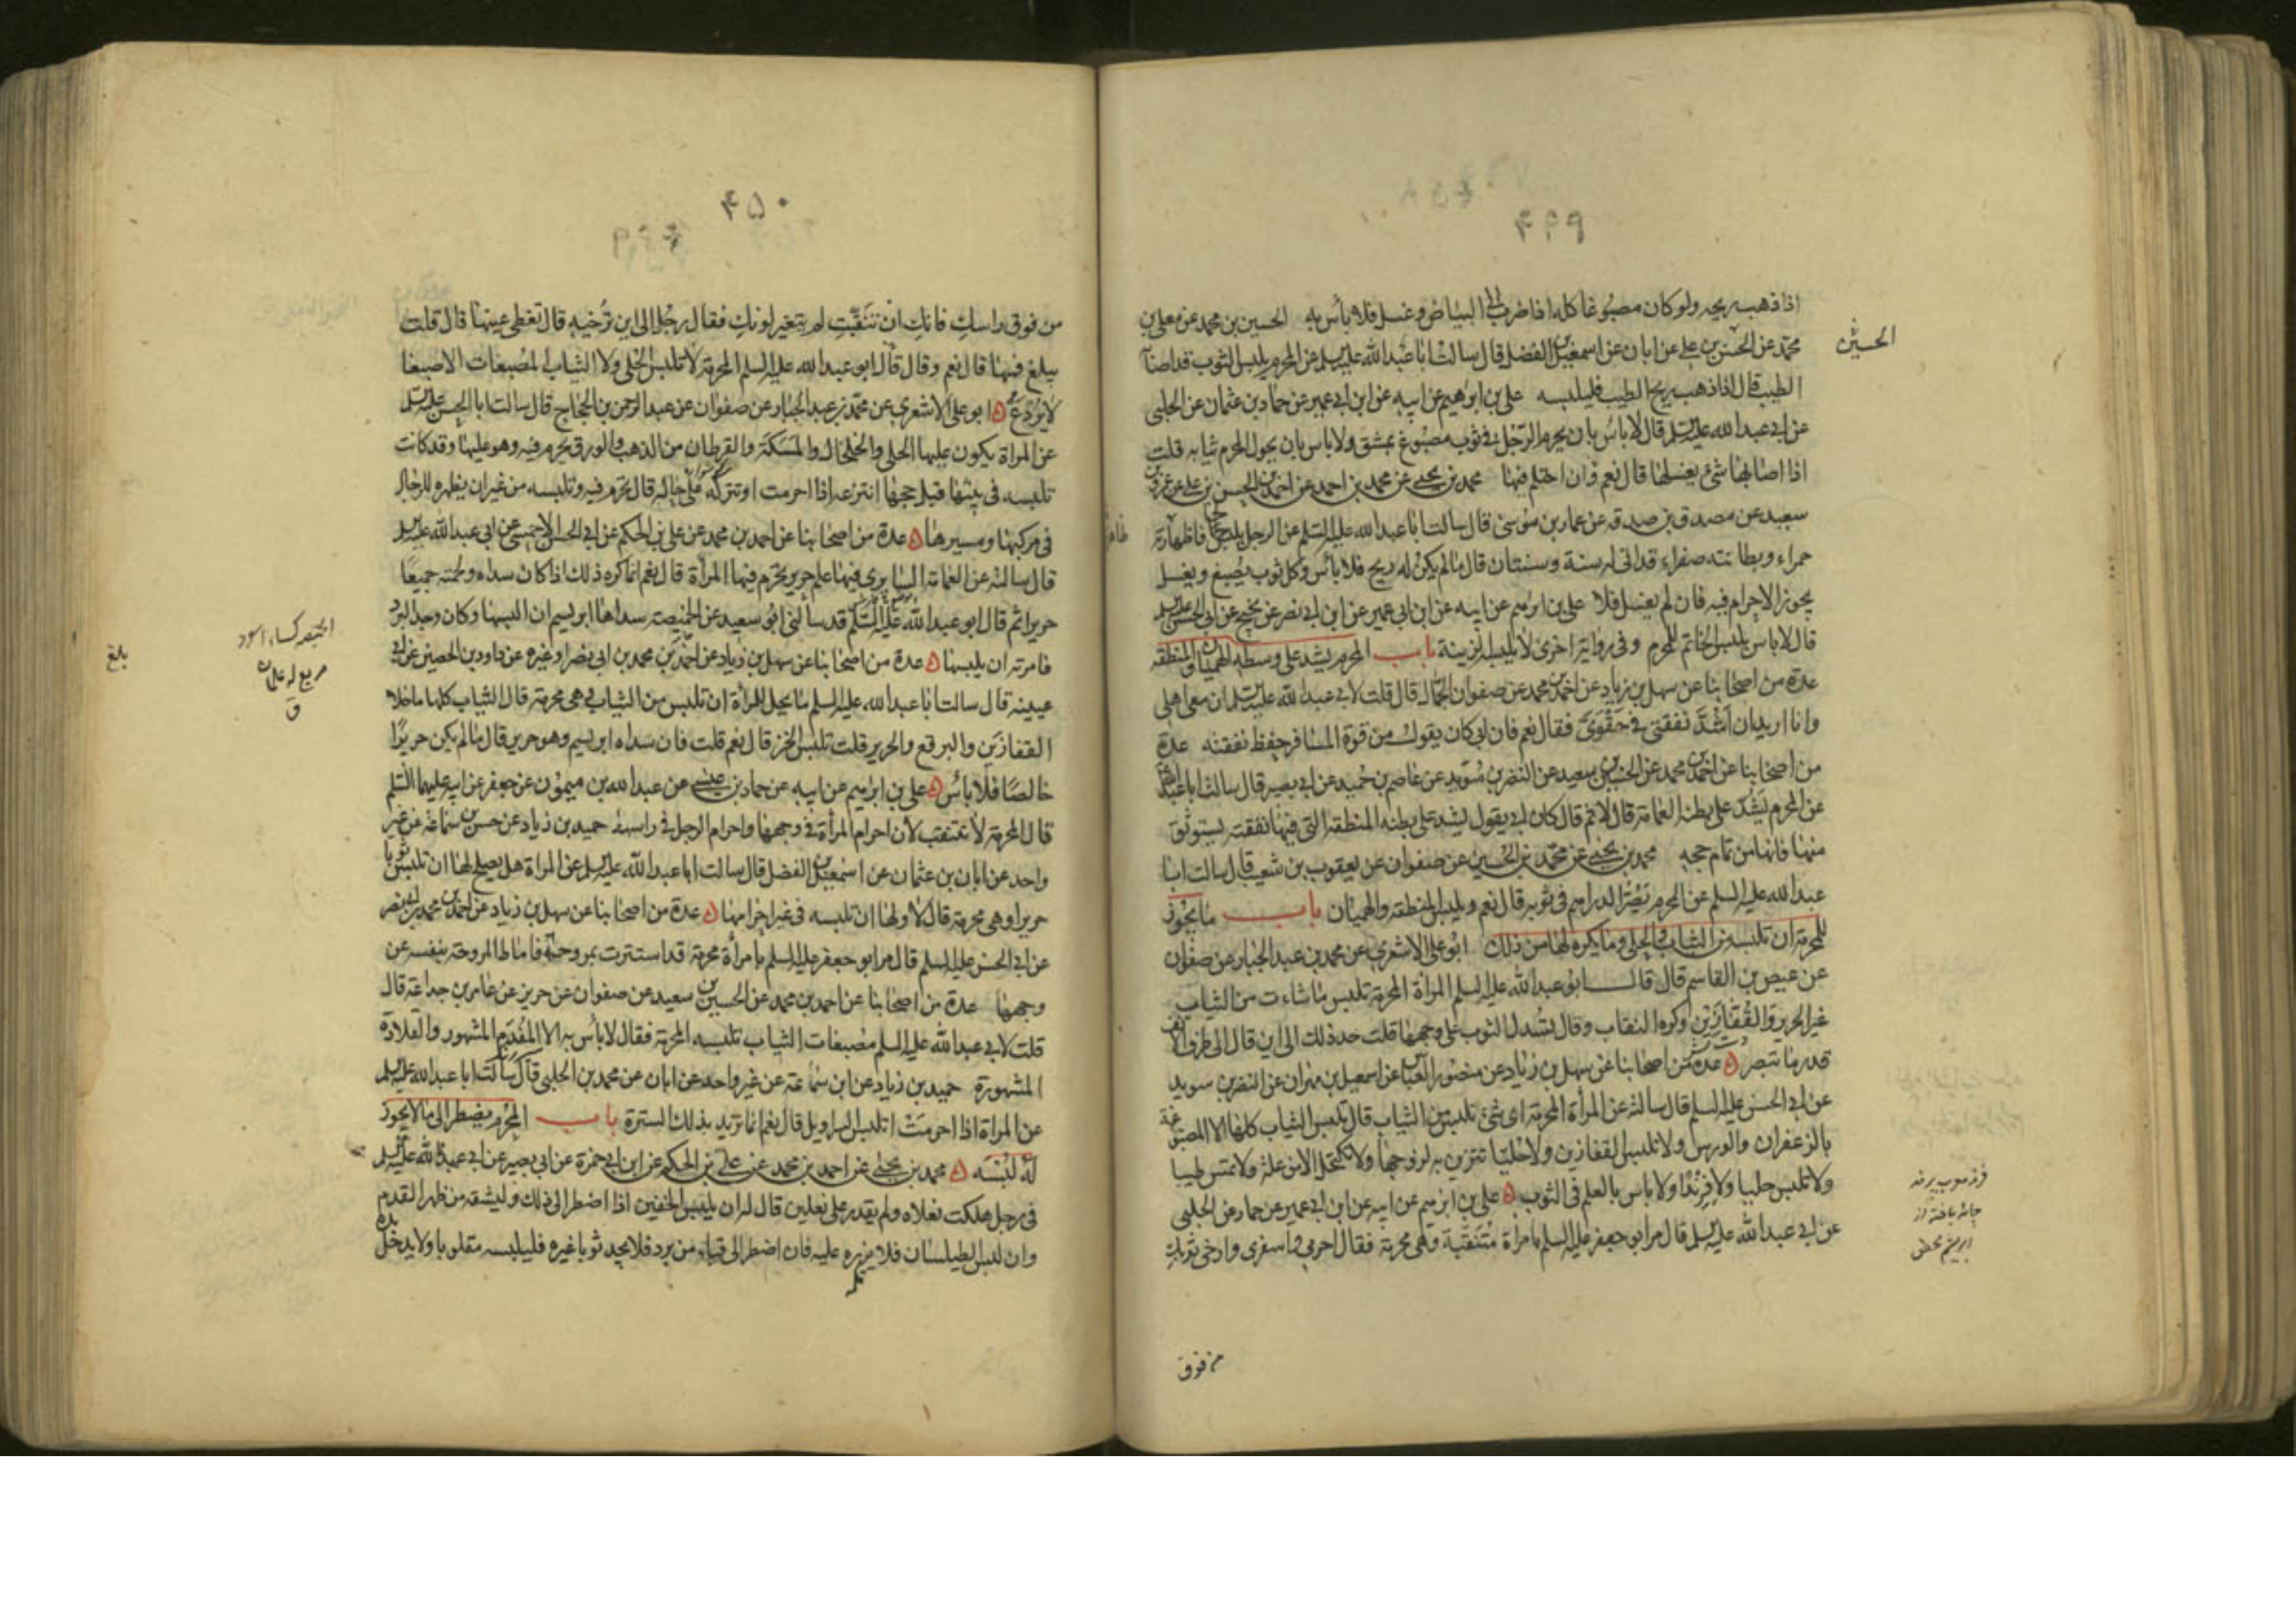 ۴۴۹
اذا ذهب ريحه ولو كان مصبوغا كله اذا ضرب الى البياض وغسل فلا بأس به الحسين بن محمد عن معلى بن
محمد عن الحسن بن على عن ابان عن اسمعيل بن الفضل قال سالت ابا عبد الله عليه السلم عن المحرم يلبس الثوب قد اصابه
الحسين
الطيب قال اذا ذهب ريح الطيب فليلبسه على بن ابرهيم عن ابيه عن ابن ابى عمير عن حماد بن عثمان عن الحلبى
عن ابى عبد الله عليه السلم قال لا بأس بان يحرم الرجل فى ثوب مصبوغ بمشق ولا باس بان يحول المحرم ثيابه قلت
اذا اصابها شئ يغسلها قال نعم وان احتلم فيها محمد بن يحيى عن محمد بن احمد عن احمد بن الحسن بن على عن عمرو بن
سعيد عن مصدق بن صدقه عن عمار بن موسى قال سالت ابا عبد الله عليه السلم عن الرجل يلبس لحافا ظهارته
حمراء وبطانته صفراء قد اتى له سنة وسنتان قال ما لم يكن له ريح فلا بأس وكل ثوب يصبغ ويغسل
يجوز الاحرام فيه فان لم يغسل فلا على بن ابرهيم عن ابيه عن ابن ابى عمير عن ابن ابى نصر عن نجيح عن ابى الحسن عليه السلم
قال لا باس بلبس الخاتم للمحرم وفى رواية اخرى لا يلبسه للزينة باب المحرم يشد على وسطه الهميان والمنطقه
عدة من اصحابنا عن سهل بن زياد عن احمد بن محمد عن صفوان الجمال قال قلت لابى عبد الله عليه السلم ان معى اهلى
وانا اريد ان اشد نفقتى فى حقوى فقال نعم فان ابى كان يقول من قوة المسافر حفظ نفقته عدة
من اصحابنا عن احمد بن محمد عن الحسين بن سعيد عن النضر بن سويد عن عاصم بن حميد عن ابى بصير قال سالت ابا عبد الله
عن المحرم يشد على بطنه العمامة قال لا ثم قال كان ابى يقول يشد على بطنه المنطقه التى فيها نفقته يستوثق
منها فانها من تمام حجه محمد بن يحيى عن محمد بن الحسين عن صفوان عن يعقوب بن شعيب قال سالت ابا
عبد الله عليه السلم عن المحرم يصر الدراهم فى ثوبه قال نعم ويلبس المنطقه والهميان باب ما يجوز
للمحرمة ان تلبسه من الثياب والحلى وما يكره لها من ذلك ابو على الاشعرى عن محمد بن عبد الجبار عن صفوان
عن عيص بن القاسم قال قال ابو عبد الله عليه السلم المراة المحرمة تلبس ما شاءت من الثياب
غير الحرير والقفازين وكره النقاب وقال تسدل الثوب على وجهها قلت حد ذلك الى اين قال الى طرف الانف
قدر ما تبصر عدة من اصحابنا عن سهل بن زياد عن منصور بن العباس عن اسمعيل بن مهران عن النضر بن سويد
عن ابى الحسن عليه السلم قال سالته عن المرأة المحرمة اى شئ تلبس من الثياب قال تلبس الثياب كلها الا المصبوغة
بالزعفران والورس ولا تلبس القفازين ولا حليا تتزين به لزوجها ولا تكتحل الا من علة ولا تمس طيبا
ولا تلبس حليا ولا فرندا ولا باس بالعلم فى الثوب على بن ابرهيم عن ابيه عن ابن ابى عمير عن حماد عن الحلبى
عن ابى عبد الله عليه السلم قال مر ابو جعفر عليه السلم بامرأة متنقبة وهى محرمة فقال احرمى واسفرى وارخى ثوبك
من فوق
۴۵۰
من فوق راسك فانك ان تنقبت لم يتغير لونك فقال رجل الى اين ترخيه قال تغطى عينها قال قلت
يبلغ فيها قال نعم وقال قال ابو عبد الله عليه السلم المحرمة لا تلبس الحلى ولا الثياب المصبغات الا صبغا
لا يردع ابو على الاشعرى عن محمد بن عبد الجبار عن صفوان عن عبد الرحمن بن الحجاج قال سالت ابا الحسن عليه السلم
عن المراة يكون عليها الحلى والخلخال والمسكة والقرطان من الذهب والورق تحرم فيه وهو عليها وقد كانت
تلبسه فى بيتها قبل حجها انتزعه اذا احرمت او تتركه على حاله قال تحرم فيه وتلبسه من غير ان يظهره للرجال
فى مركبها ومسيرها عدة من اصحابنا عن احمد بن محمد عن على بن الحكم عن ابى الحسن الاحمسى عن ابى عبد الله عليه السلم
قال سالته عن العمامة السابرى فيها علم حرير تحرم فيها المرأة قال نعم انما كره ذلك اذا كان سداه ولحمته جميعا
حريرا ثم قال ابو عبد الله عليه السلم قد سألنى ابو سعيد عن الخميصة سداها ابريسم ان البسها وكان وجد البرد
فامرته ان يلبسها عدة من اصحابنا عن سهل بن زياد عن احمد بن محمد بن ابى نصر او غيره عن داود بن الحصين عن ابى
الخميصه كساء اسود
مربع له علمان
ق
بلغ
عيينه قال سالت ابا عبد الله عليه السلم ما يحل للمرأة ان تلبس من الثياب وهى محرمة قال الثياب كلها ما خلا
القفازين والبرقع والحرير قلت تلبس الخز قال نعم قلت فان سداه ابريسم وهو حرير قال ما لم يكن حريرا
خالصا فلا بأس على بن ابرهيم عن ابيه عن حماد بن عيسى عن عبد الله بن ميمون عن جعفر عن ابيه عليهما السلم
قال المحرمة لا تتنقب لان احرام المرأة فى وجهها واحرام الرجل فى راسه حميد بن زياد عن حسن بن سماعة عن غير
واحد عن ابان بن عثمان عن اسمعيل بن الفضل قال سالت ابا عبد الله عليه السلم عن المراة هل يصلح لها ان تلبس ثوبا
حريرا وهى محرمة قال لا ولها ان تلبسه فى غير احرامها عدة من اصحابنا عن سهل بن زياد عن احمد بن محمد بن ابى نصر
عن ابى الحسن عليه السلم قال مر ابو جعفر عليه السلم بامرأة محرمة قد استترت بمروحة فاماط المروحة بنفسه عن
وجهها عدة من اصحابنا عن احمد بن محمد عن الحسين بن سعيد عن صفوان عن حريز عن عامر بن جداعة قال
قلت لابى عبد الله عليه السلم مصبغات الثياب تلبسه المحرمة فقال لا بأس به الا المفدم المشهور والقلادة
المشهورة حميد بن زياد عن ابن سماعة عن غير واحد عن ابان عن محمد بن الحلبى قال سالت ابا عبد الله عليه السلم
عن المراة اذا احرمت اتلبس السراويل قال نعم انما تريد بذلك السترة باب المحرم يضطر الى ما لا يجوز
له لبسه محمد بن يحيى عن احمد بن محمد عن على بن الحكم عن ابن ابى حمزة عن ابى بصير عن ابى عبد الله عليه السلم
فى رجل هلكت نعلاه ولم يقدر على نعلين قال له ان يلبس الخفين اذا اضطر الى ذلك وليشقه من ظهر القدم
وان لبس الطيلسان فلا يزره عليه فان اضطر الى قباء من برد فلا يجد ثوبا غيره فليلبسه مقلوبا ولا يدخل